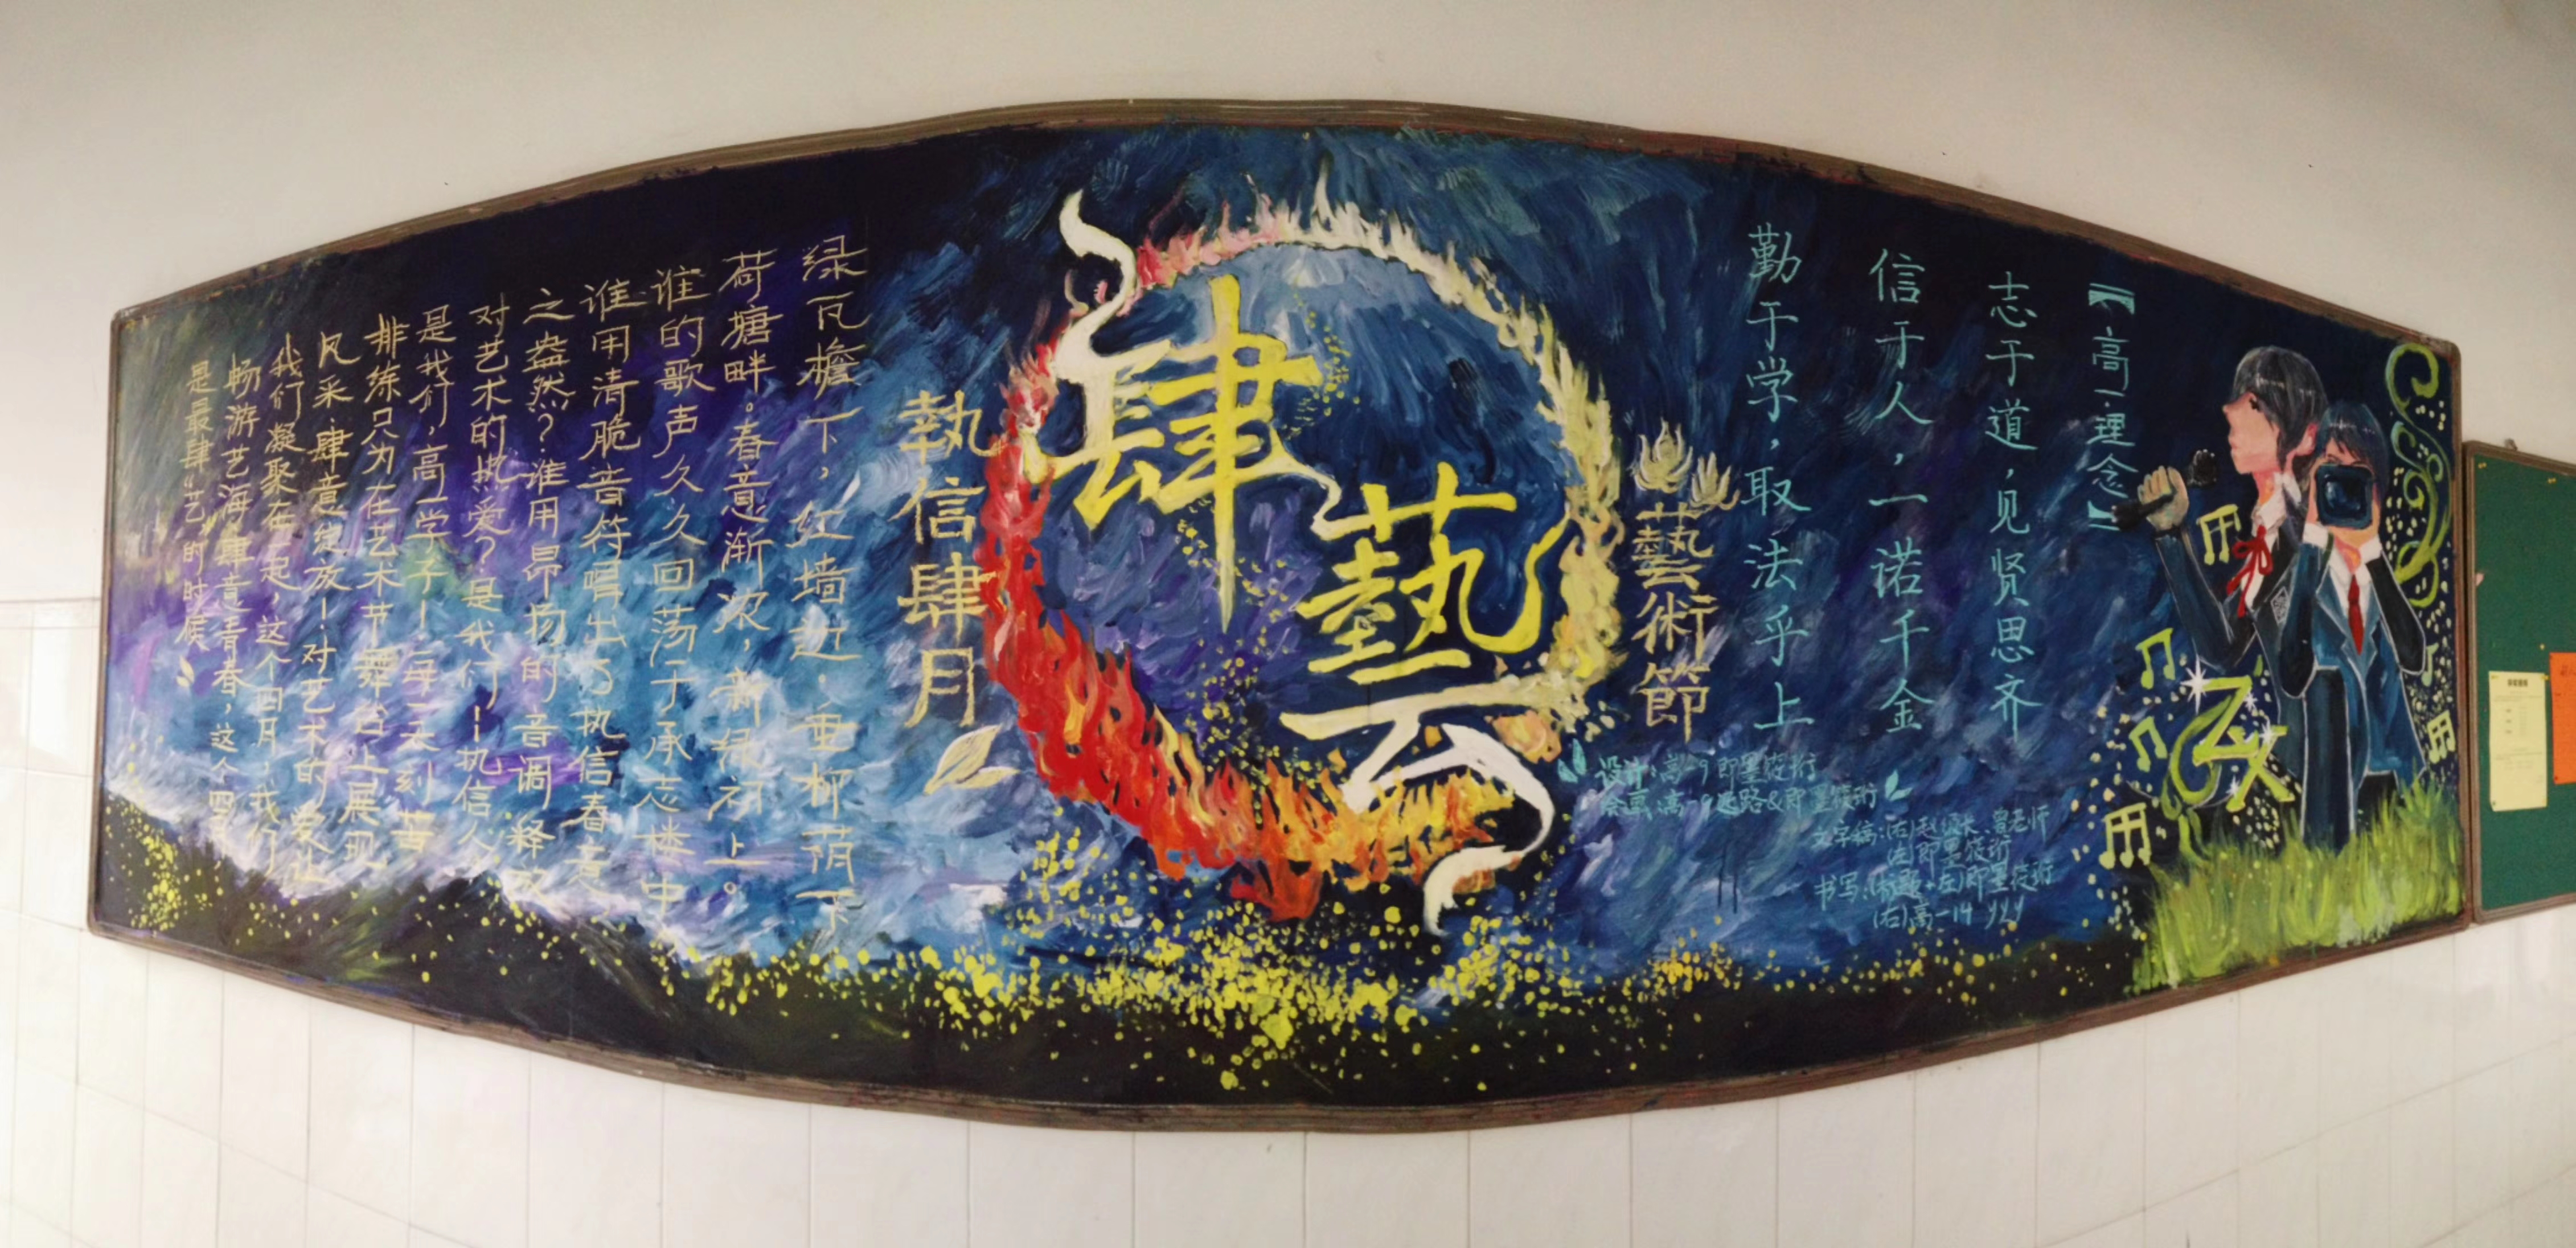 【高一·理念】
志于道，见贤思齐
信于人，一诺千金
勤于学，取法乎上
藝術節
肆藝
執信肆月
绿瓦檐下，红墙边，垂柳荫下
荷塘畔。春意渐浓，新绿初上。
谁的歌声久久回荡于承志楼中
谁用清脆音符唱出了执信春意
之盎然？谁用昂扬的音调释放
对艺术的热爱？是我们！执信人
是我们，高一学子！每一天刻苦
排练只为在艺术节舞台上展现
风采，肆意绽放！对艺术的爱让
我们凝聚在一起，这个四月，我们
畅游艺海，肆意青春，这个四月，
是最肆“艺”的时候
设计：高一9 即墨筱珩
绘画：高一9 &即墨筱珩
文字稿：(右)赵校长、曾老师
(左)即墨筱珩
书写：(标题+左)即墨筱珩
(右)高一14
ZX